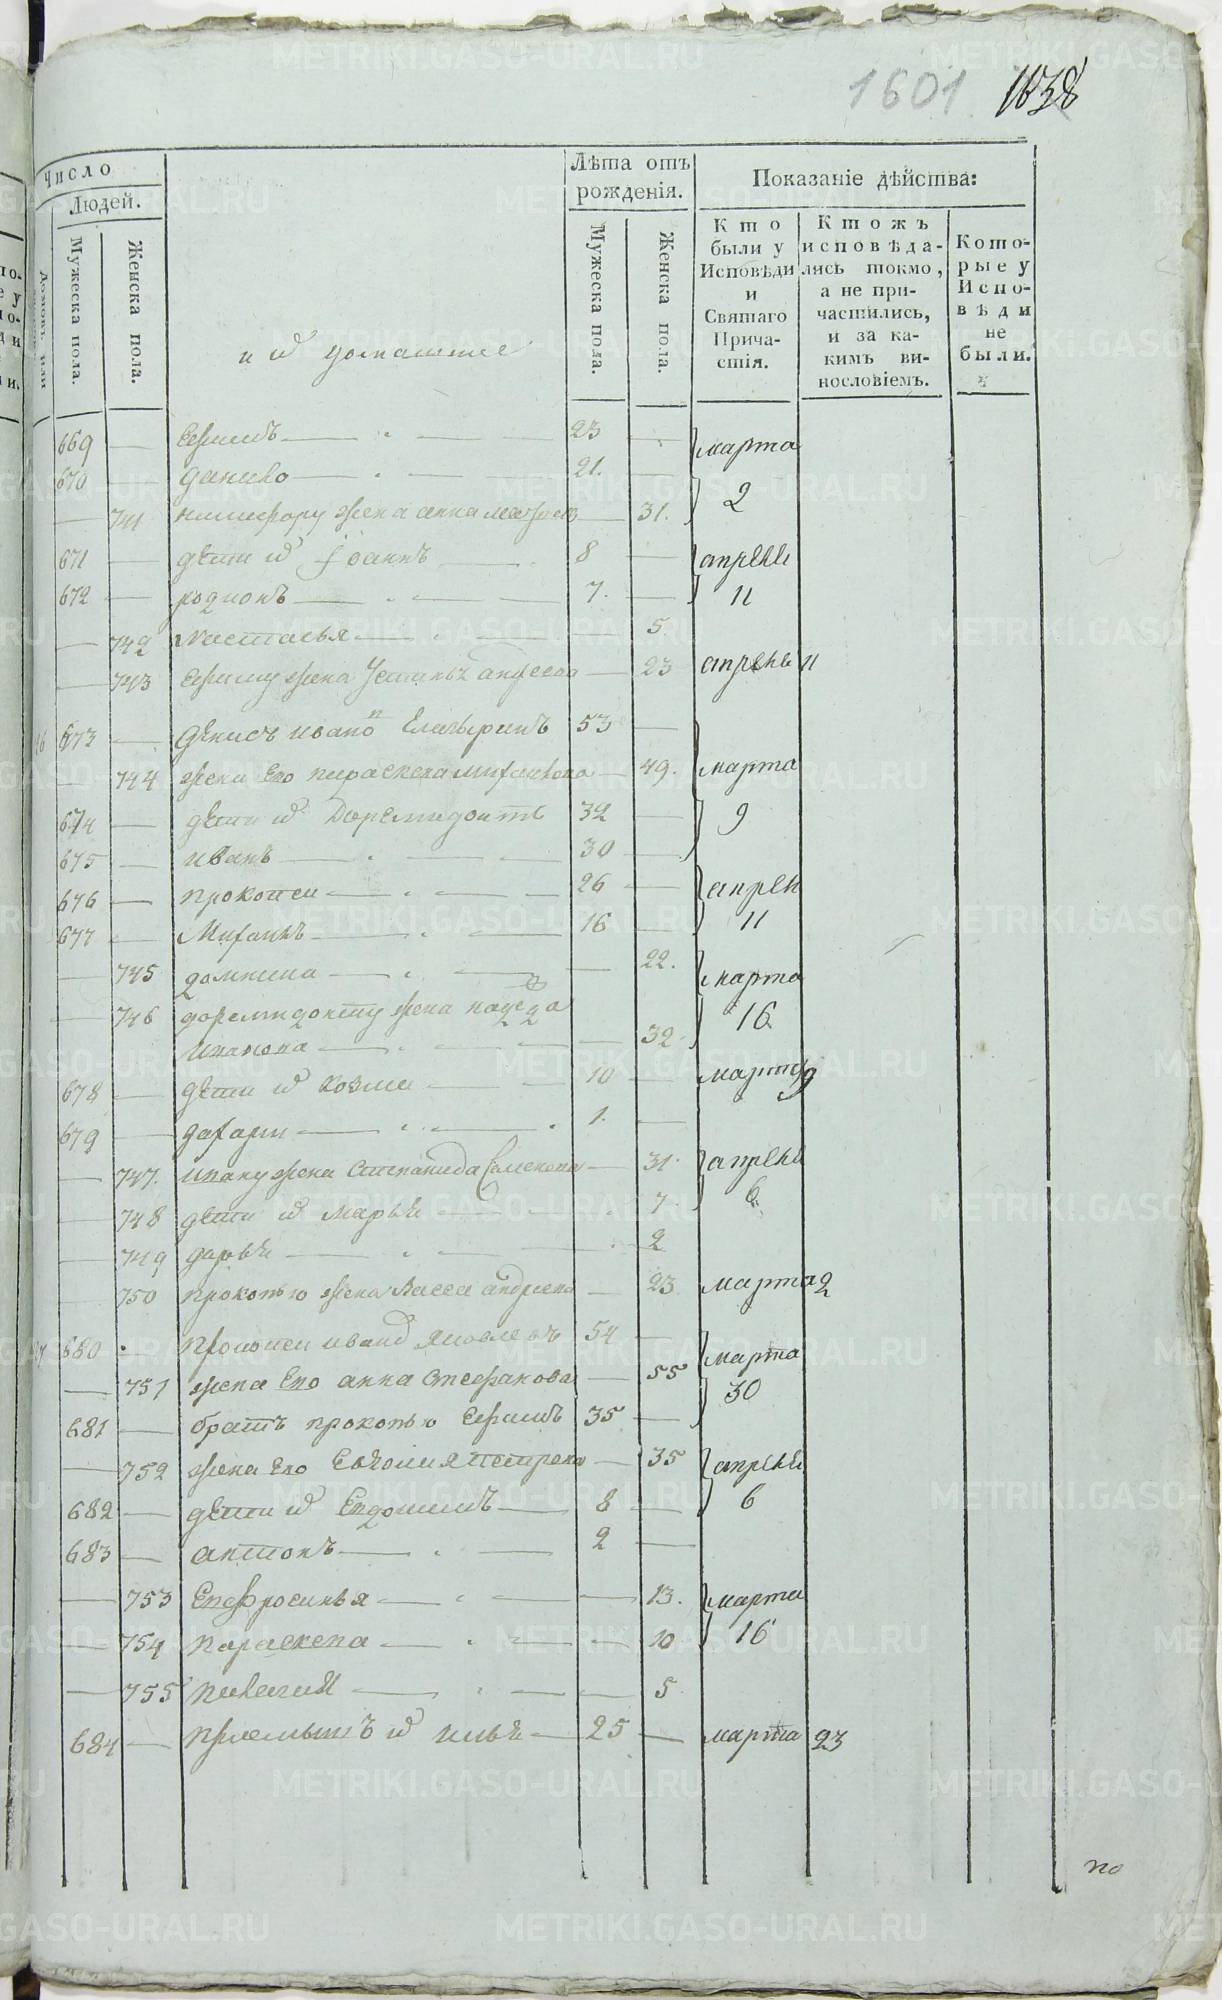 1601 1638
Число
Людей.
Мужеска пола.
Женска пола.
Лѣта отъ рожденія.
Мужеска пола.
Женска пола.
Показаніе дѣйства:
Кто были у Исповѣди и Святаго Причастія.
Ктожъ исповѣдались токмо, а не причастились, и за какимъ винословіемъ.
Которые у Исповѣди не были.
и ѿ домашние
669 — Ефимъ — 23 —
марта
670 — данило — 21. —
2
— 741 никифору жена анна — 31.
671 — дети ѿ Іоаннъ — 8 —
апреля
672 — родионъ — 7. —
11
— 742 Настасья — 5
— 743 Ефиму жена — 23 апреля 11
673 — Денисъ ивано 53 —
— 744 жена Его параскева михаилова — 49. марта
674 — дети ѿ Доремидонтъ 32 —
9
675 — иванъ — 30 —
676 — прокопеи — 26 —
апреля
677 — Михаилъ — 16 —
11
— 745 домнина — 22.
марта
— 746 доремидонту жена надежда
16
иванова — 32
678 — дети ѿ козма — 10 — марта 9
679 — захари — 1. —
— 747. ивану жена Степанида Семенова — 31. апреля
— 748 дети ѿ марья — 7
6
— 749 дарья — 2
— 750 прокопью жена Васса андреева — 23 марта 2
680 Прокопеи ивано Яковлевъ 54 —
марта
— 751 жена Его анна Стефанова — 55
30
681 — братъ прокопью Ефимъ 35 —
— 752 жена Его Евгения петрова — 35 апреля
682 — дети ѿ Евдокимъ — 8 —
6
683 — антонъ — 2 —
— 753 Ефросинья — 13. марта
— 754 параскева — 10
16
— 755 пелагия — 5
684 — приемышъ ѿ илья — 25 — марта 23
по
METRIKI.GASO-URAL.RU